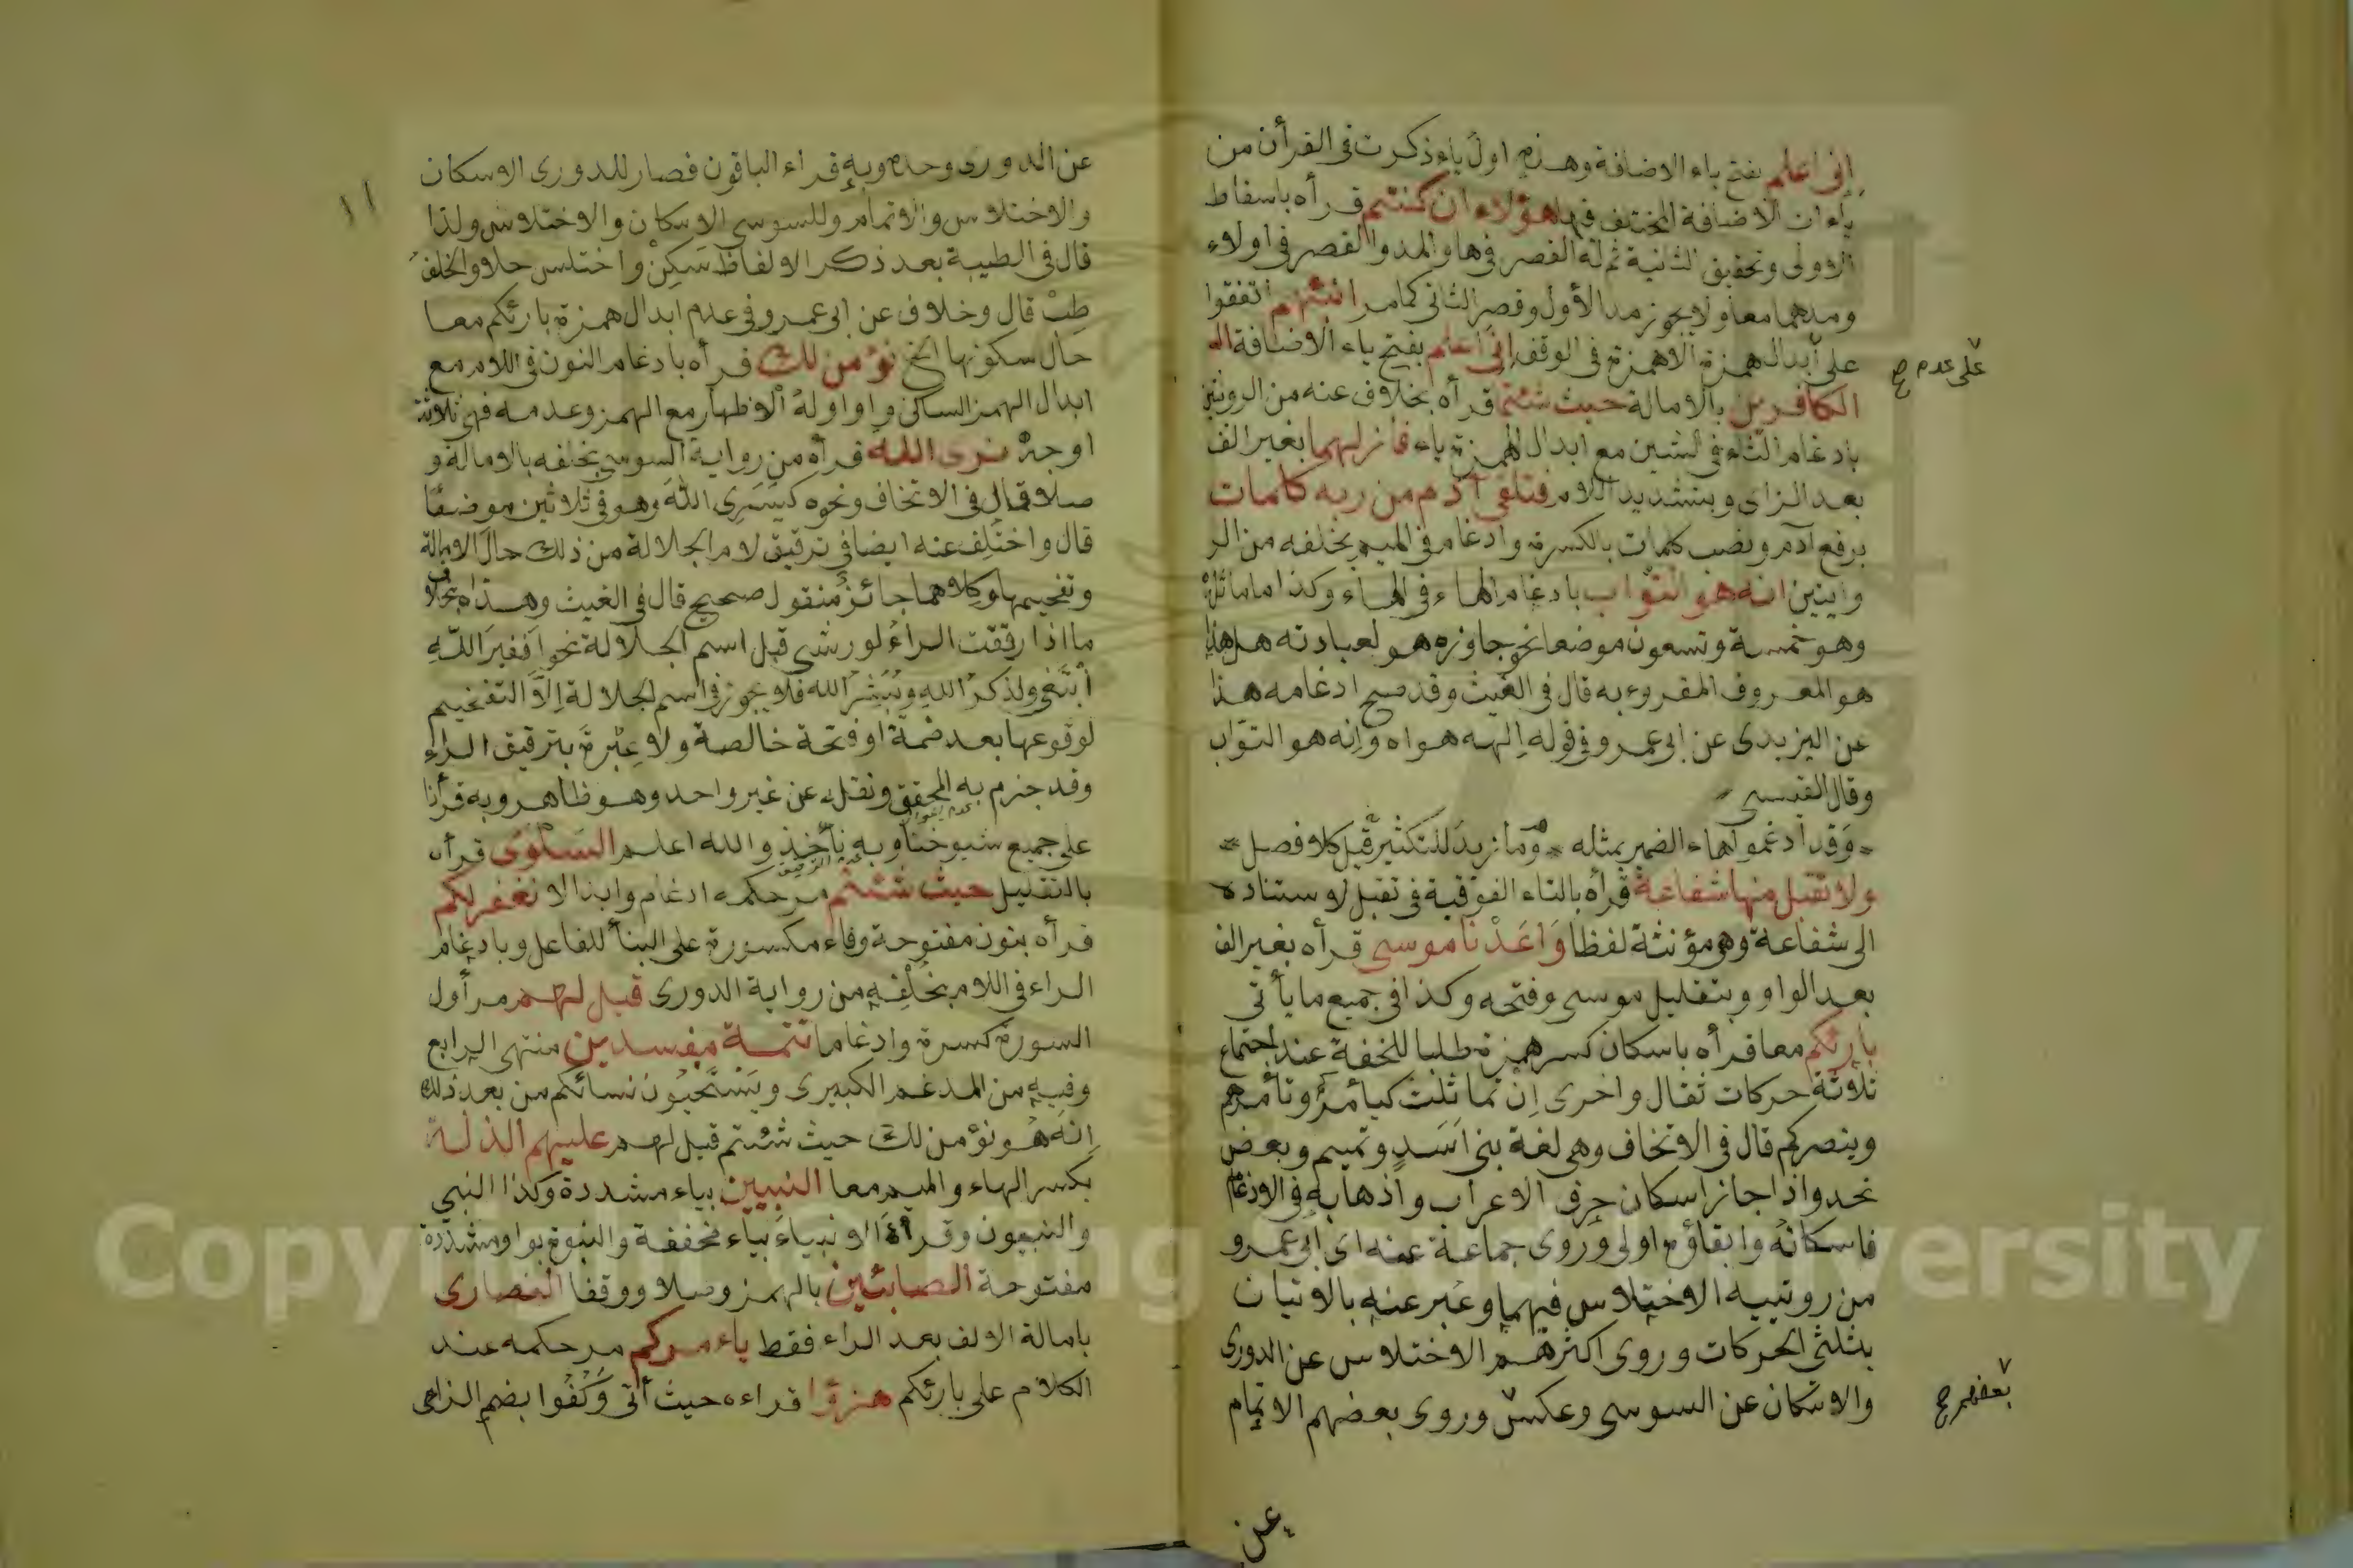 إنى اعلم بفتح ياء الاضافة وهذه اول ياء ذكرت فى القرأن من
ياءات الاضافة المختلف فيها هؤلاء ان كنتم قرأه باسقاط
الاولى وتحقيق الثانية ثم له القصر فى ها والمد والقصر فى اولاء
ومدهما معا ولا يجوز مد الأول وقصر الثانى كما مر انبئهم اتفقوا
على أبدال همزة الا همزة فى الوقف إنى اعلم بفتح ياء الاضافة
على عدم صح
الكافرين بالامالة حيث شئتم قرأه بخلاف عنه من الروتين
بادغام الثاء فى الشين مع ابدال الهمزة ياء فازلهما بغير الف
بعد الزاى وبتشديد اللام فتلقى آدم من ربه كلمات
برفع آدم ونصب كلمات بالكسرة وادغام فى الميم بخلفه من الر
وايتين انه هو التواب بادغام الهاء فى الهاء وكذا ما ماثله
وهو خمسة وتسعون موضعا نحو جاوزه هو لعبادته هل هذا
هو المعروف المقروء به قال فى الغيث وقد صح ادغامه هذا
عن اليزيدى عن ابى عمرو فى قوله إلهه هواه وإنه هو التواب
وقال القيسى
وقد ادغموا هاء الضمير بمثله وما زيد للتكثير قبل كلا فصل
ولا تقبل منها شفاعة قرأه بالتاء الفوقية فى تقبل لاستناده
الى شفاعة وهو مؤنثة لفظا وَاعَدْنا موسى قرأه بغير الف
بعد الواو وبتقليل موسى وفتحه وكذا فى جميع ما يأتى
بارئكم معا قرأه باسكان كسر همزة طلبا للخفة عند اجتماع
ثلاثة حركات ثقال واحرى إن تماثلت كيأمركم وتأمرهم
وينصركم قال فى الاتخاف وهى لغة بنى اَسَدٍ وتميم وبعض
نجد واذا جاز اسكان حرف الاعراب واذهابه فى الادغام
فاسكانه وابقاؤه اولى وروى جماعة عنه اى ابى عمرو
من روتييه الاختلاس فيهما وعبر عنه بالاتيان
بثلثى الحركات وروى اكثرهم الاختلاس عن الدورى
والاسكان عن السوسى وعكس وروى بعضهم الاتمام
بعضهم صح
عن
١١
عن الدورى وحده وبه قراء الباقون فصار للدورى الاسكان
والاختلاس والاتمام وللسوسى الاسكان والاختلاس ولذا
قال فى الطيبة بعد ذكر الالفاظ سَكِنْ واختلس حلا والخلف
طِبْ قال وخلاف عن ابى عمرو فى عدم ابدال همزة بارئكم معا
حال سكونها الخ نؤمن لك قرأه بادغام النون فى اللام مع
ابدال الهمز الساكن واوا وله الاظهار مع الهمز وعدمه فهى ثلاثة
اوجه نرى الله قرأه من رواية السوسى بخلفه بالامالة و
صلا قال فى الاتخاف ونحوه كيسَرِى الله وهو فى ثلاثين موضعًا
قال واختلِف عنه ايضا فى ترقيق لام الجلالة من ذلك حال الامالة
وتفخيمها وكلاهما جائز منقول صحيح قال فى الغيث وهذا بخلاف
ما اذا رققت الراء لورش قبل اسم الجلالة نحو افغير اللّه
أبتغى ولذكر الله ويبشر الله فلا يجوز فى اسم الجلالة إلا التفخيم
لوقوعها بعد ضمة او فتحة خالصة ولا عِبْرة بترقيق الراء
وقد جزم به المحقق ونقله عن غير واحد وهو ظاهر وبه قرأنا
على جميع شيوخنا وبه نأخذ والله اعلم السَلْوَى قرأه
بالتقليل حيث شئتم مر حكمه ادغام وابدالا نغفر لكم
قرأه بنون مفتوحة وفاء مكسورة على البناء للفاعل وبادغام
الراء فى اللام بخُلْفِهِ من رواية الدورى قيل لهم مر أول
السورة كسرة وادغاما تتمة مفسدين منتهى الرابع
وفيه من المدغم الكبيرى ويَسْتَحْيُون نسائكم من بعد ذلك
إنه هُو نؤمن لك حيث شئتم قيل لهم عليهم الذلة
بكسر الهاء والميم معا النبيين بياء مشددة وكذا النبى
والنبيون وقرأه الانبياءَ بياء مخففة والنبوة بواو مشددة
مفتوحة الصابئين بالهمز وصلا ووقفا النصارى
بامالة الالف بعد الراء فقط ياءمركم مر حكمه عند
الكلام على بارئكم هزؤا قراءه حيث أتى وَكُفُوا بضم الزاى